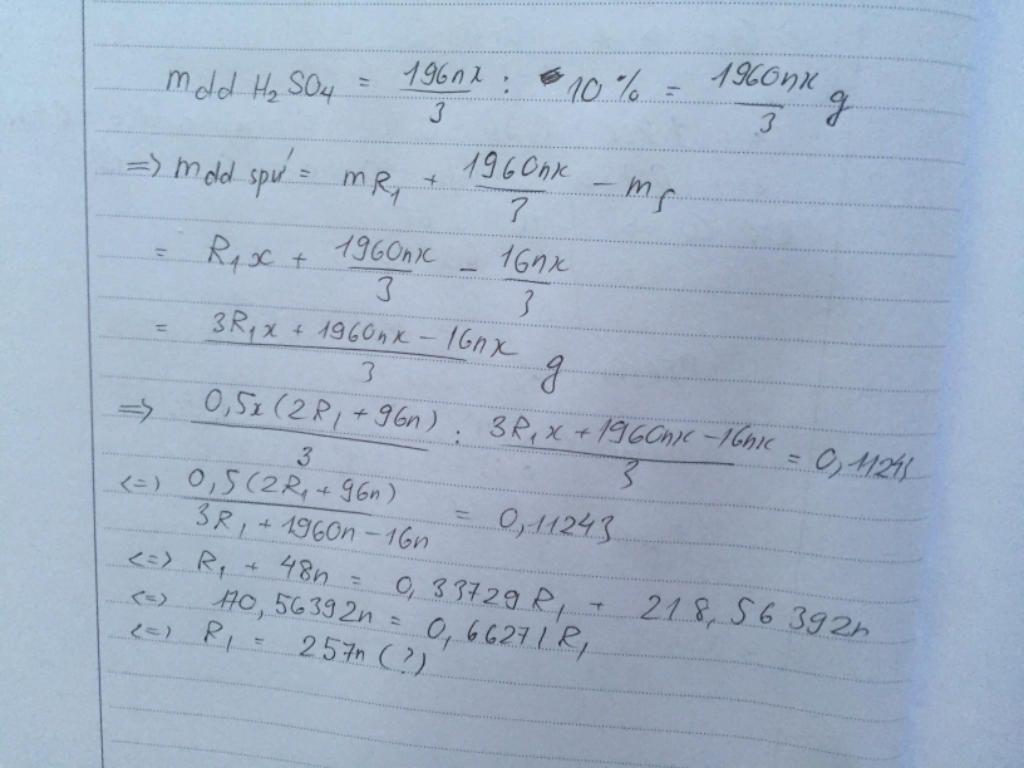 m dd H₂SO₄ = 196nx/3 : 10% = 1960nx/3 g
=> m dd spứ = mR₁ + 1960nx/3 - m S
= R₁x + 1960nx/3 - 16nx/3
= (3R₁x + 1960nx - 16nx)/3 g
=> 0,5x(2R₁ + 96n)/3 : (3R₁x + 1960nx - 16nx)/3 = 0,11243
<=> 0,5(2R₁ + 96n)/(3R₁ + 1960n - 16n) = 0,11243
<=> R₁ + 48n = 0,33729R₁ + 218,56392n
<=> 170,56392n = 0,66271R₁
<=> R₁ = 257n (?)